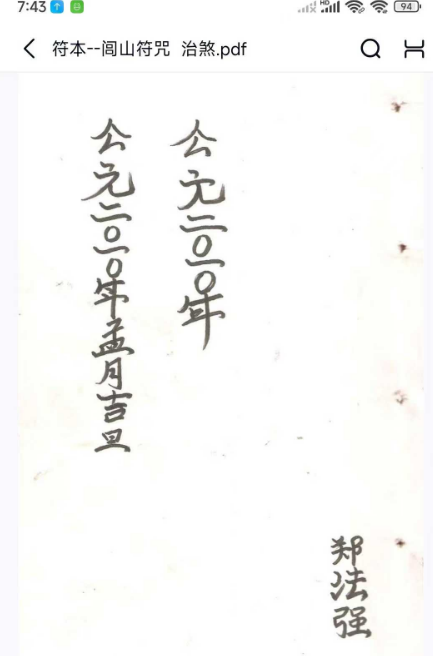 7:43
HD
94
符本--闾山符咒 治煞.pdf
郑法强
公元二〇一〇年
公元二〇一〇年孟月吉旦